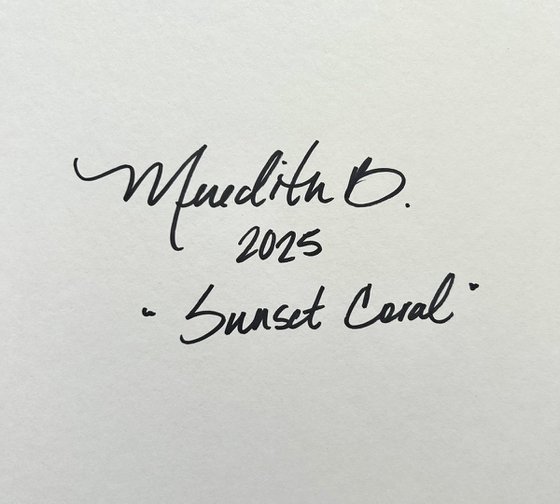 Meredith B.
2025
"Sunset Coral"